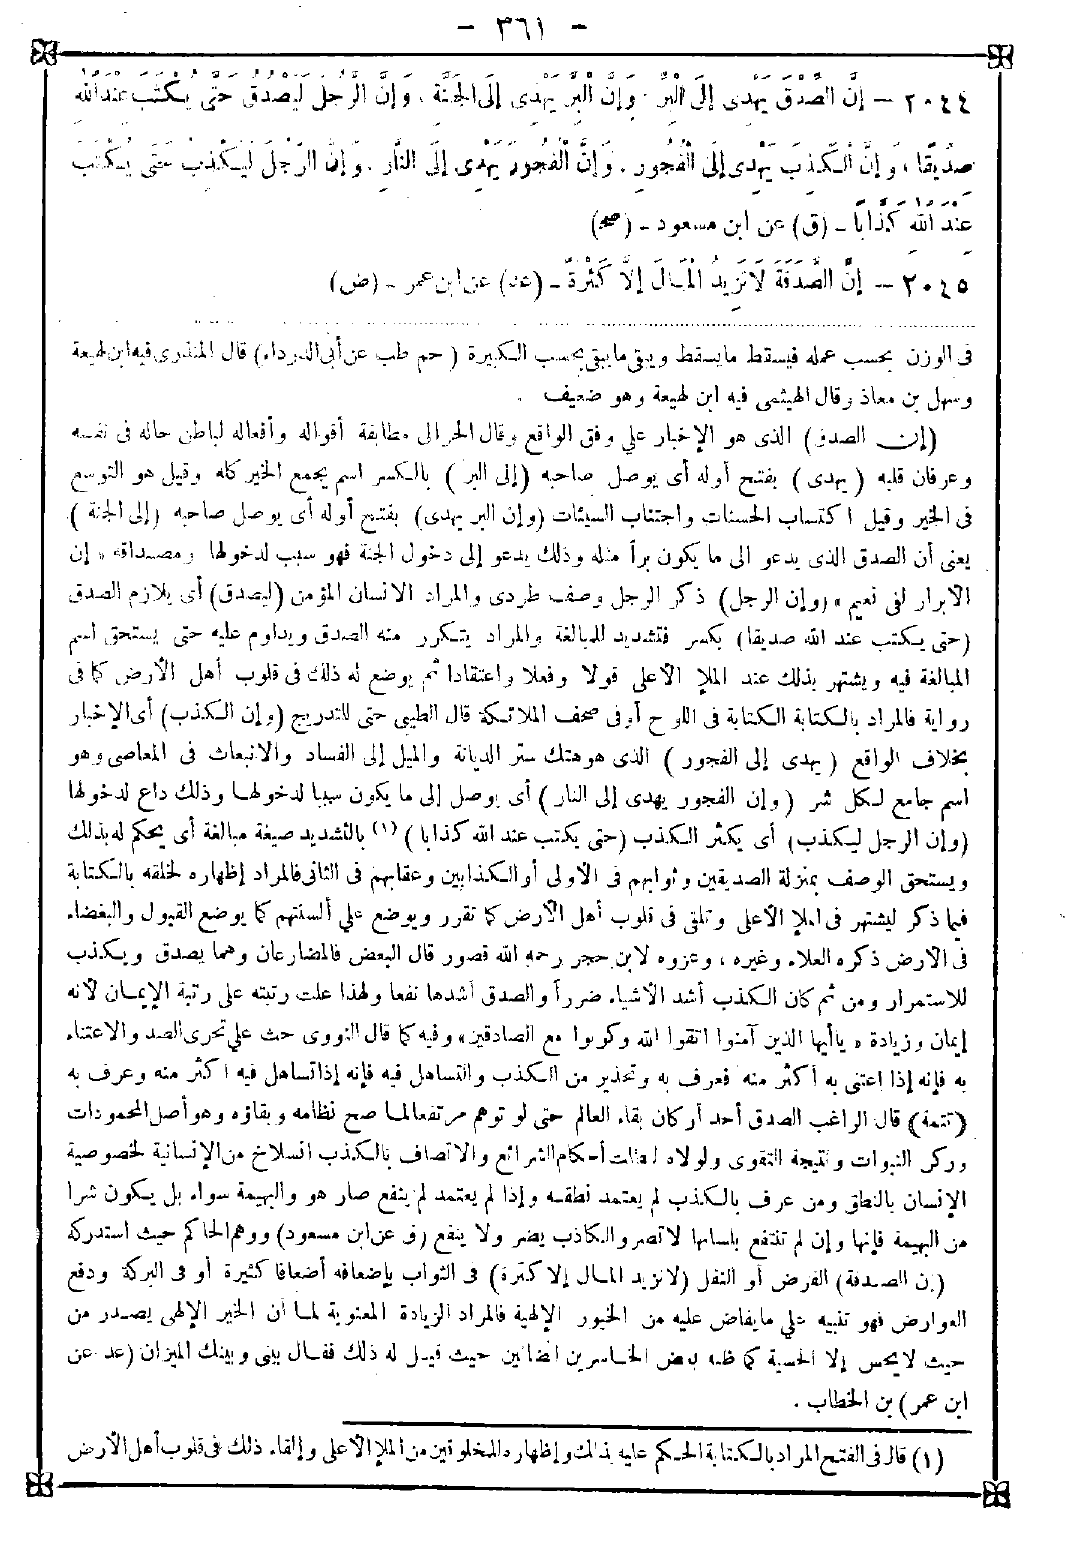 - ٣٦١ -
٢٠٤٤ - إِنَّ الصِّدْقَ يَهْدِى إِلَى الْبِرِّ. وَإِنَّ الْبِرَّ يَهْدِى إِلَى الْجَنَّةِ، وَإِنَّ الرَّجُلَ لَيَصْدُقُ حَتَّى يُكْتَبَ عِنْدَ اللّٰهِ
صِدِّيقًا، وَإِنَّ الْكَذِبَ يَهْدِى إِلَى الْفُجُورِ. وَإِنَّ الْفُجُورَ يَهْدِى إِلَى النَّارِ. وَإِنَّ الرَّجُلَ لَيَكْذِبُ حَتَّى يُكْتَبَ
عِنْدَ اللّٰهِ كَذَّابًا - (ق) عن ابن مسعود - (صح)
٢٠٤٥ - إِنَّ الصَّدَقَةَ لَا تَزِيدُ الْمَالَ إِلَّا كَثْرَةً - (عد) عن ابن عمر - (ض)
فى الوزن بحسب عمله فيسقط مايسقط ويبقى مايبقى بحسب الكبيرة (حم طب عن أبى الدرداء) قال المنذرى فيه ابن لهيعة
وسهل بن معاذ وقال الهيثمى فيه ابن لهيعة وهو ضعيف .
(إن الصدق) الذى هو الإخبار على وفق الواقع وقال الحرالى مطابقة أقواله وأفعاله لباطن حاله فى نفسه
وعرفان قلبه (يهدى) بفتح أوله أى يوصل صاحبه (إلى البر) بالكسر اسم يجمع الخير كله وقيل هو التوسع
فى الخير وقيل اكتساب الحسنات واجتناب السيئات (وإن البر يهدى) بفتح أوله أى يوصل صاحبه (إلى الجنة)
يعنى أن الصدق الذى يدعو الى ما يكون براً مثله وذلك يدعو إلى دخول الجنة فهو سبب لدخولها ومصداقه «إن
الابرار لفى نعيم» (وإن الرجل) ذكر الرجل وصف طردى والمراد الانسان المؤمن (ليصدق) أى يلازم الصدق
(حتى يكتب عند الله صديقا) بكسر فتشديد للمبالغة والمراد يتكرر منه الصدق ويداوم عليه حتى يستحق اسم
المبالغة فيه ويشتهر بذلك عند الملإ الأعلى قولا وفعلا واعتقادا ثم يوضع له ذلك فى قلوب أهل الأرض كما فى
رواية فالمراد بالكتابة الكتابة فى اللوح أو فى صحف الملائكة قال الطيبى حتى للتدريج (وإن الكذب) أى الإخبار
بخلاف الواقع (يهدى إلى الفجور) الذى هو هتك ستر الديانة والميل إلى الفساد والانبعاث فى المعاصى وهو
اسم جامع لكل شر (وإن الفجور يهدى إلى النار) أى يوصل إلى ما يكون سببا لدخولها وذلك داع لدخولها
(وإن الرجل ليكذب) أى يكثر الكذب (حتى يكتب عند الله كذابا) (١) بالتشديد صيغة مبالغة أى يحكم له بذلك
ويستحق الوصف بمنزلة الصديقين وثوابهم فى الأولى أو الكذابين وعقابهم فى الثانى فالمراد إظهاره لخلقه بالكتابة
فيما ذكر ليشتهر فى الملإ الأعلى وتلقى فى قلوب أهل الأرض كما تقرر ويوضع على ألسنتهم كما يوضع القبول والبغضاء
فى الارض ذكره العلاء وغيره ، وعزوه لابن حجر رحمه الله قصور قال البعض فالمضارعان وهما يصدق ويكذب
للاستمرار ومن ثم كان الكذب أشد الأشياء ضرراً والصدق أشدها نفعا ولهذا علت رتبته على رتبة الإيمان لأنه
إيمان وزيادة «ياأيها الذين آمنوا اتقوا الله وكونوا مع الصادقين» وفيه كما قال النووى حث على تحرى الصد والاعتناء
به فإنه إذا اعتنى به أكثر منه فعرف به وتحذير من الكذب والتساهل فيه فإنه إذا تساهل فيه أكثر منه وعرف به
(تتمة) قال الراغب الصدق أحد أركان بقاء العالم حتى لو توهم مرتفعا لما صح نظامه وبقاؤه وهو أصل المحمودات
وركن النبوات ونتيجة التقوى ولولاه لبطلت أحكام الشرائع والاتصاف بالكذب انسلاخ من الإنسانية لخصوصية
الإنسان بالنطق ومن عرف بالكذب لم يعتمد نطقه وإذا لم يعتمد لم ينفع صار هو والبهيمة سواء بل يكون شرا
من البهيمة فإنها وإن لم تنتفع بلسانها لاتضر والكاذب يضر ولا ينفع (ق عن ابن مسعود) ووهم الحاكم حيث استدركه
(إن الصدقة) الفرض أو النفل (لاتزيد المال إلا كثرة) فى الثواب بإضعافه أضعافا كثيرة أو فى البركة ودفع
العوارض فهو تنبيه على مايفاض عليه من الخيور الإلهية فالمراد الزيادة المعنوية لما أن الخير الإلهى يصدر من
حيث لايحس إلا الحسية كما ظنه بعض الخاسرين الضالين حيث قيل له ذلك فقال بينى وبينك الميزان (عد عن
ابن عمر) بن الخطاب .
(١) قال فى الفتح المراد بالكتابة الحكم عليه بذلك وإظهاره للمخلوقين من الملإ الأعلى وإلقاء ذلك فى قلوب أهل الأرض